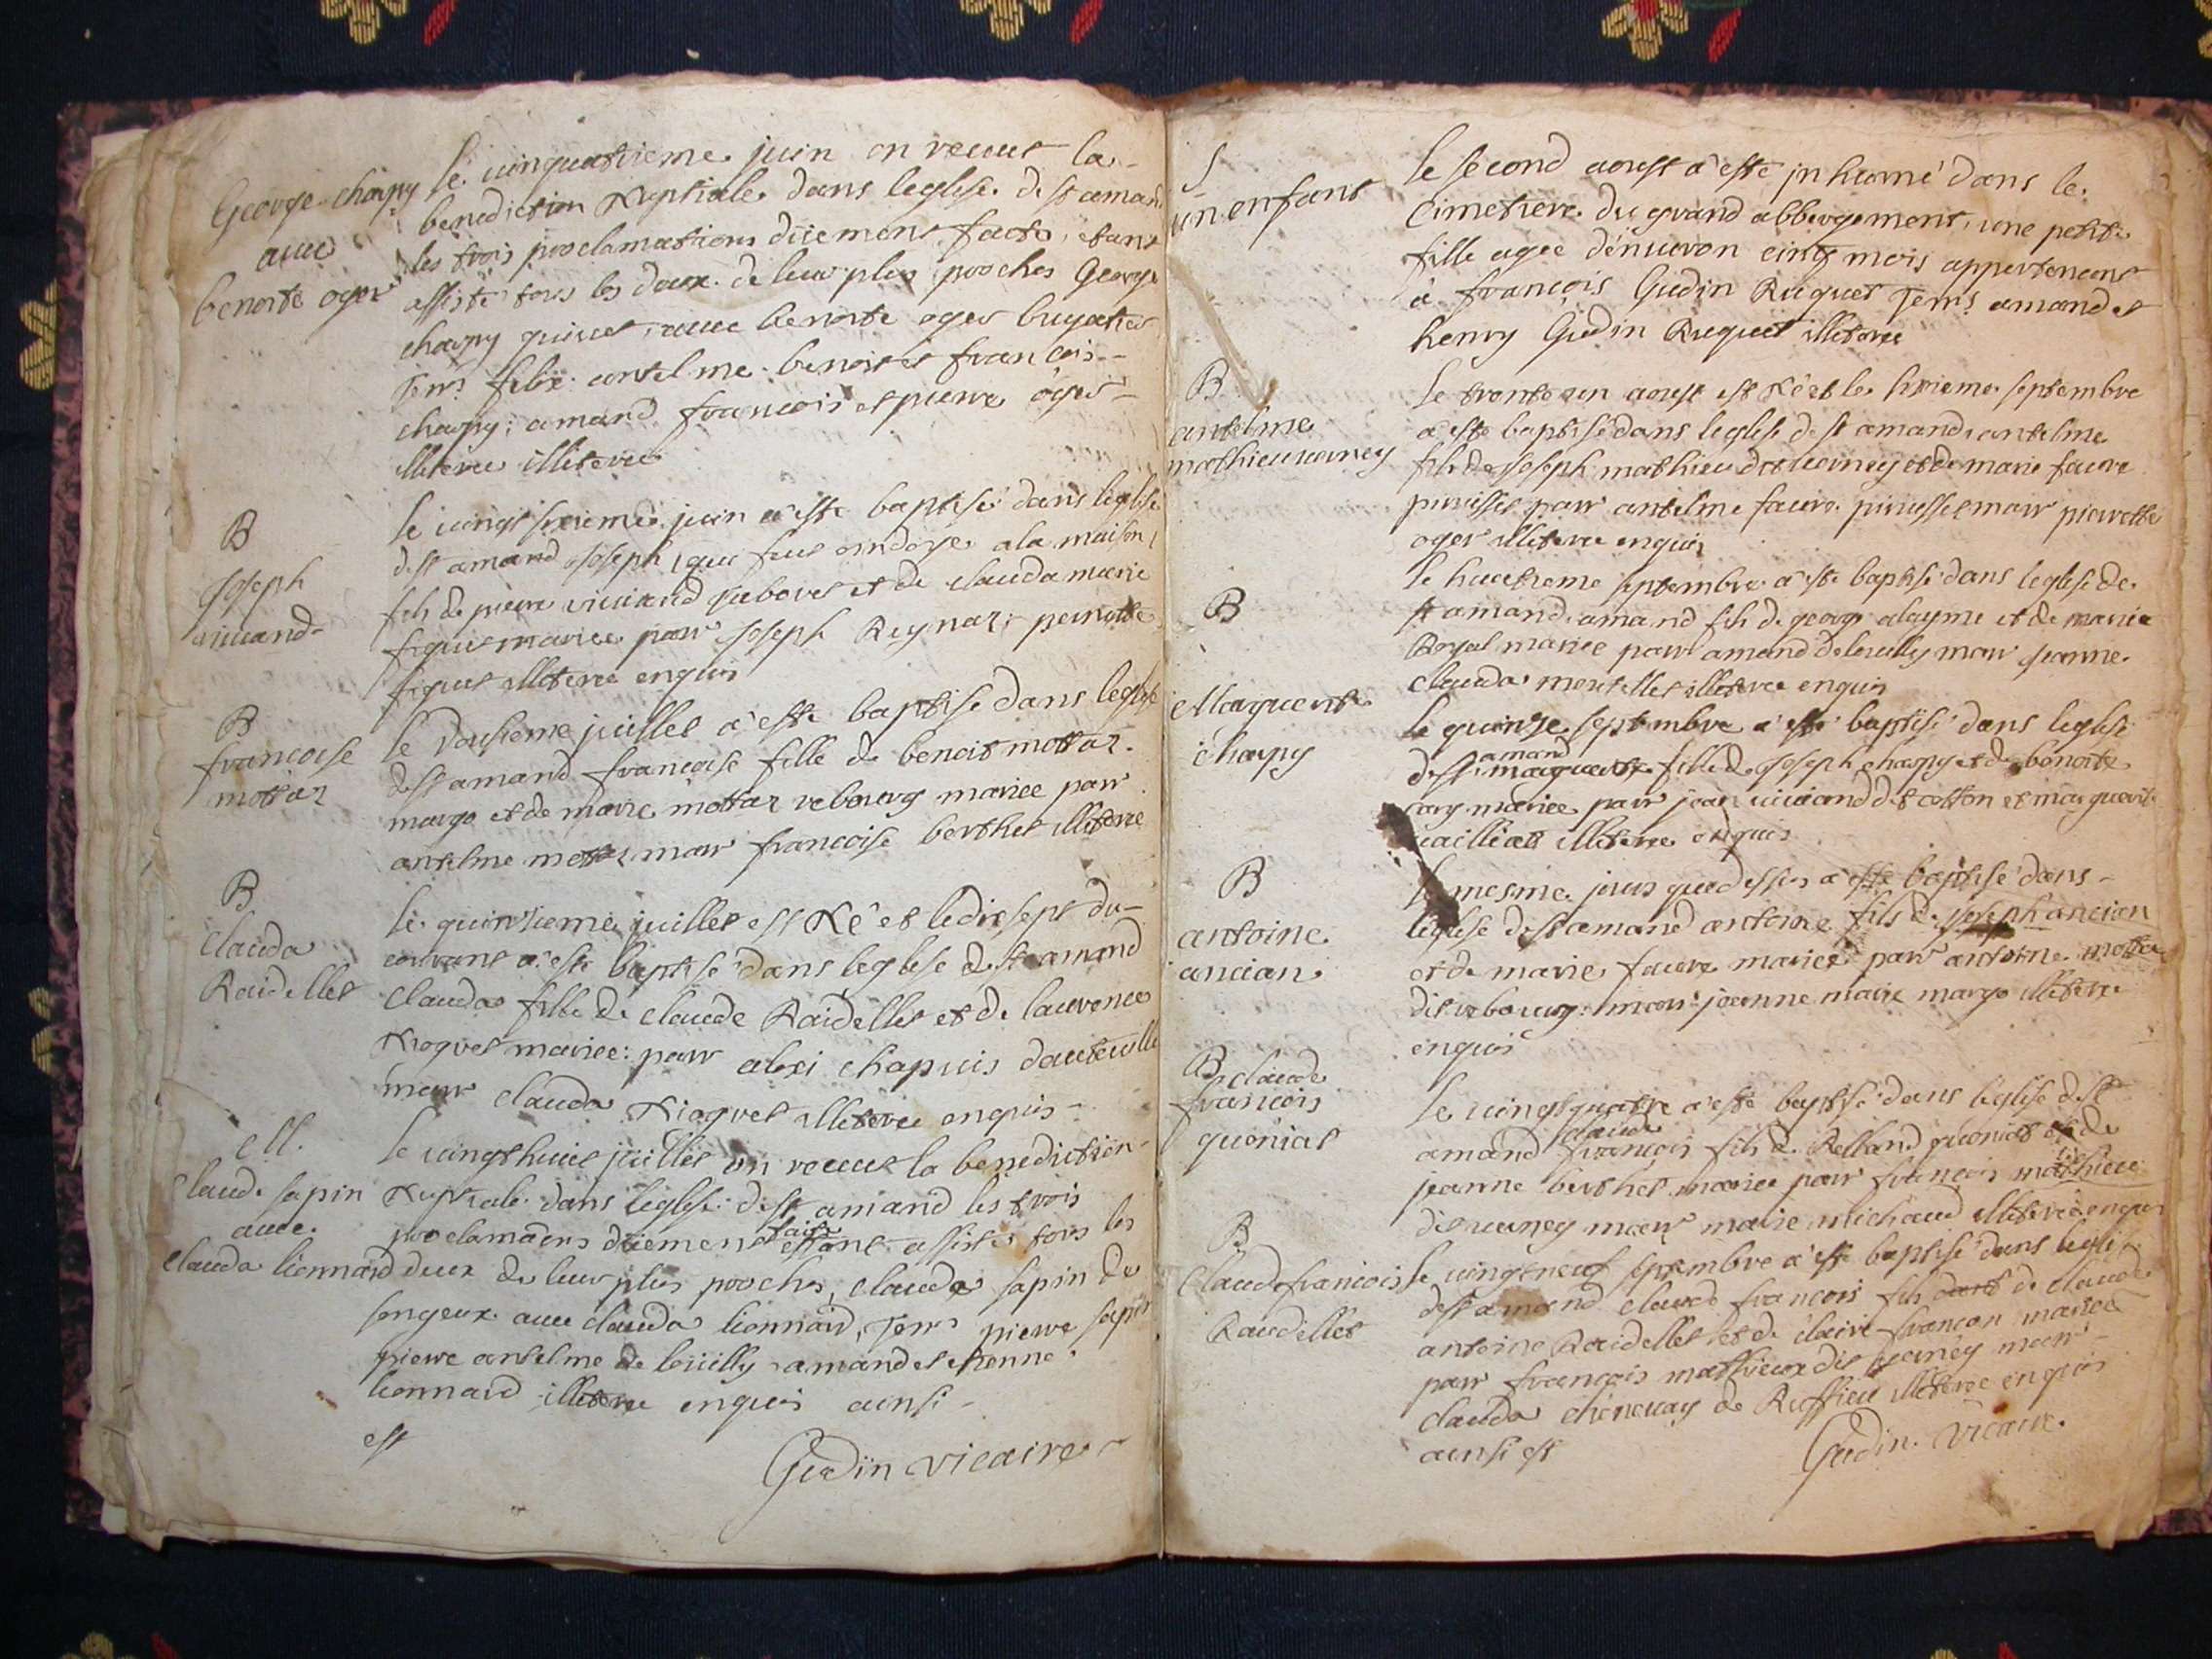 George chapuy
avec
benoite oger
le vingquatrieme juin on receut la
benediction Nuptiale dans leglise de st amand
les trois proclamations düemens faite, etant
assisté tous les deux de leur plus proches George
chapuy avec benoite oger
Tem? felix antelme benoit et francois
chapuy; amand francois et pierre oger
illiteree
B
Joseph
viviand
le vingt sixieme juin a esté baptisé dans leglise
de st amand Joseph, que fut ondoyé a la maison,
fils de pierre viviand et de clauda marie
mariee parr Joseph Reynaz
illiteree enquis
B
francoise
mottaz
le dousieme juillet a esté baptise dans leglise
de st amand francoise fille de benoit mottaz
margo et de marie mottaz rebourg mariee parr
antelme mottaz marr francoise berthet illiteree
B
clauda
Raidellet
le quinsieme juillet est Né et le dix sept du
courant a esté baptisé dans leglise de st amand
clauda fille de claude Raidellet et de laurence
mariee: parr alexi chapuis dauteville
marr clauda illiteree enquis
M.
claude sapin
avec
clauda lionnard
le vingt huict juillet on receut la benediction
Nuptiale dans leglise de st amand les trois
proclamaons düement faite estant assistes tous les
deux de leur plus proches, claude sapin de
songeux avec clauda lionnard, Tem? pierre sapin
pierre antelme de leüilly amand et etienne
lionnard illiteree enquis ainsi
est
Gudin vicaire
S
un enfant
le second aoust a esté jnhumé dans le
Cimetiere du grand abbergement, une petite
fille agee d'environ cinq mois appartenant
a francois Gudin Ruquet Tem? amand et
henry Gudin Ruquet illiteree
B
antelme
mathieu verney
le trente un aoust est Né et le sixieme septembre
a esté baptisé dans leglise de st amand antelme
fils de Joseph mathieu dit verney et de marie favre
parr antelme favre marr pierrette
oger illiteree enquis
B
le huictieme septembre a esté baptisé dans leglise de
st amand amand fils de george alayme et de marie
Royal mariee parr amand deleuilly marr jeanne
clauda montellet illiteree enquis
Marguerite
chapuy
le quinze septembre a esté baptisé dans leglise
de st amand marguerite fille de Joseph chapuy et de benoite
mariee parr jean viviand dit cotton et marguerite
illiteree enquis
B
antoine
ancian
le mesme jour que dessus a esté baptisé dans
leglise de st amand antoine fils de joseph ancian
et de marie favre mariee parr antoine mottaz
dit rebourg: marr jeanne marie margo illiteree
enquis
B claude
francois
quoniat
le vingt quatre a esté baptisé dans leglise de st
amand claude francois fils de Rolland quoniat et de
jeanne berthet mariee parr francois mathieu
dit verney marr marie michaud illiteree enquis
B
Claude francois
Raudellet
le vingt neuf septembre a esté baptisé dans leglise
de st amand claude francois fils de claude
antoine Raidellet et de claire francon mariee
parr francois mathieu dit verney marr
clauda chenevay de Ruffieu illiteree enquis
ainsi est
Gudin. vicaire.